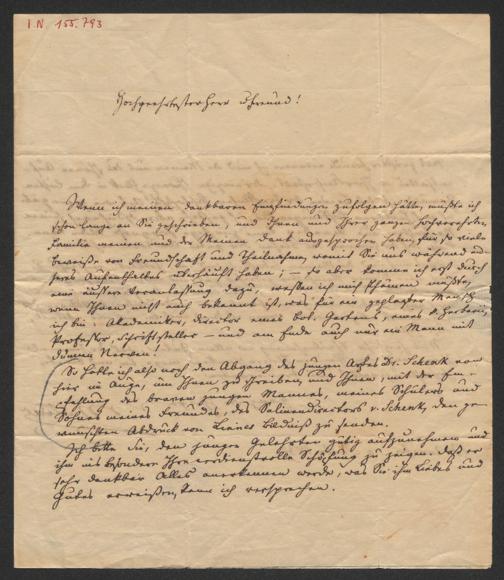 I.N. 155.793
Hochverehrtester Herr u Freund!
Wenn ich meinen dankbaren Empfindungen zufolgen hätte, müßte ich
schon lange an Sie geschrieben, und Ihnen und Ihrer ganzen hochverehrten
Familie meinen und der Meinen Dank ausgesprochen haben, für so viele
Beweise von Freundschaft und Theilnahme, womit Sie uns während un
seres Aufenthaltes überhäuft haben; – so aber komme ich erst durch
eine äussere Veranlassung dazu, wessen ich mich schämen müßte,
wenn Ihnen nicht auch bekannt ist, was für ein geplagter Mensch
ich bin. Akademiker, Director eines bot. Gartens, eines Herbariu,
Professor, Schriftsteller – und am Ende auch nur ein Mann mit
dünnen Nerven!
So habe ich also noch den Abgang des jungen Arztes Dr. Schenk von
hier im Auge, um Ihnen zu schreiben, und Ihnen, mit der Em-
pfehlung des braven jungen Mannes, meines Schülers und
Sohnes meines Freundes, des Salinendirectors v. Schenk, den ge-
wünschten Abdruck von Linnés Bildniß zu senden.
Ich bitte Sie, den jungen Gelehrten gütig aufzunehmen und
ihm insbesondere Ihre Schöpfung zu zeigen. Daß er
sehr dankbar Alles anerkennen werde, was Sie ihm Liebes und
Gutes erweisen, kann ich versprechen.